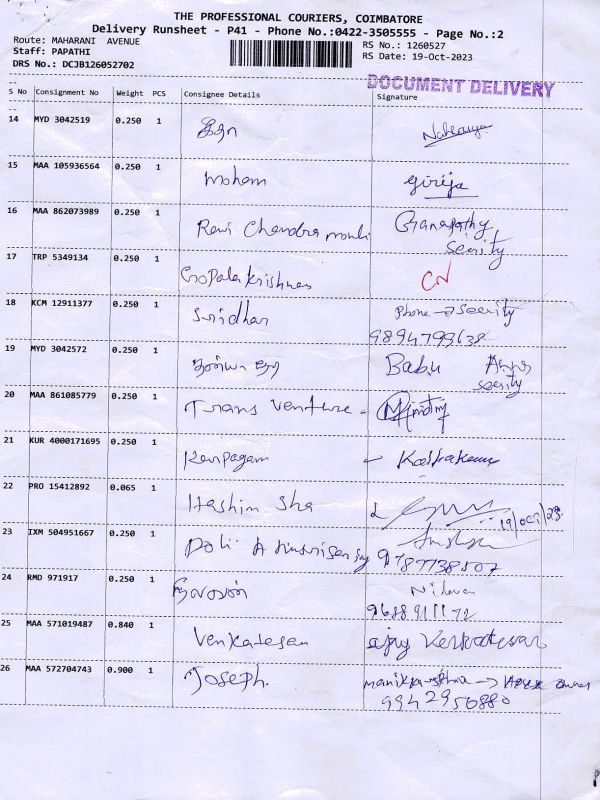 THE PROFESSIONAL COURIERS, COIMBATORE
Delivery Runsheet - P41 - Phone No.:0422-3505555 - Page No.:2
Route: MAHARANI AVENUE
RS No.: 1260527
Staff: PAPATHI
RS Date: 19-Oct-2023
DRS No.: DCJB126052702
DOCUMENT DELIVERY
S No Consignment No Weight PCS Consignee Details Signature
14 MYD 3042519 0.250 1
15 MAA 105936564 0.250 1 Moham Girija
16 MAA 862073989 0.250 1 Ravi Chandra mouli Ganapathy
17 TRP 5349134 0.250 1 Gopala krishnan CN
18 KCM 12911377 0.250 1 Sridhar Phone →
19 MYD 3042572 0.250 1 Babu
20 MAA 861085779 0.250 1 Trans Venture -
21 KUR 4000171695 0.250 1 Karpagam
22 PRO 15412892 0.065 1 Hashim Sha 19/Oct/23
23 IXM 504951667 0.250 1 9787738507
24 RMD 971917 0.250 1
9688911172
25 MAA 571019487 0.840 1 Venkatesan ajay Venkatesan
26 MAA 572704743 0.900 1 Joseph.
9942956880